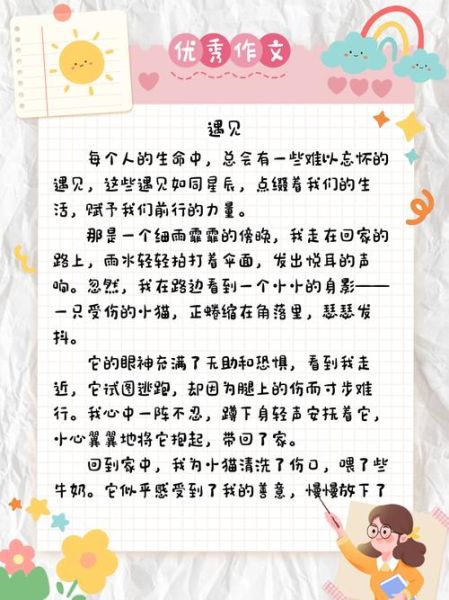 优秀作文
遇见
每个人的生命中，总会有一些难以忘怀的
遇见，这些遇见如同星辰，点缀着我们的生
活，赋予我们前行的力量。
那是一个细雨霏霏的傍晚，我走在回家的
路上，雨水轻轻拍打着伞面，发出悦耳的声
响。忽然，我在路边看到一个小小的身影——
一只受伤的小猫，正蜷缩在角落里，瑟瑟发
抖。
它的眼神充满了无助和恐惧，看到我走
近，它试图逃跑，却因为腿上的伤而寸步难
行。我心中一阵不忍，蹲下身轻声安抚着它，
小心翼翼地将它抱起，带回了家。
回到家中，我为小猫清洗了伤口，喂了些
牛奶。它似乎感受到了我的善意，慢慢放下了